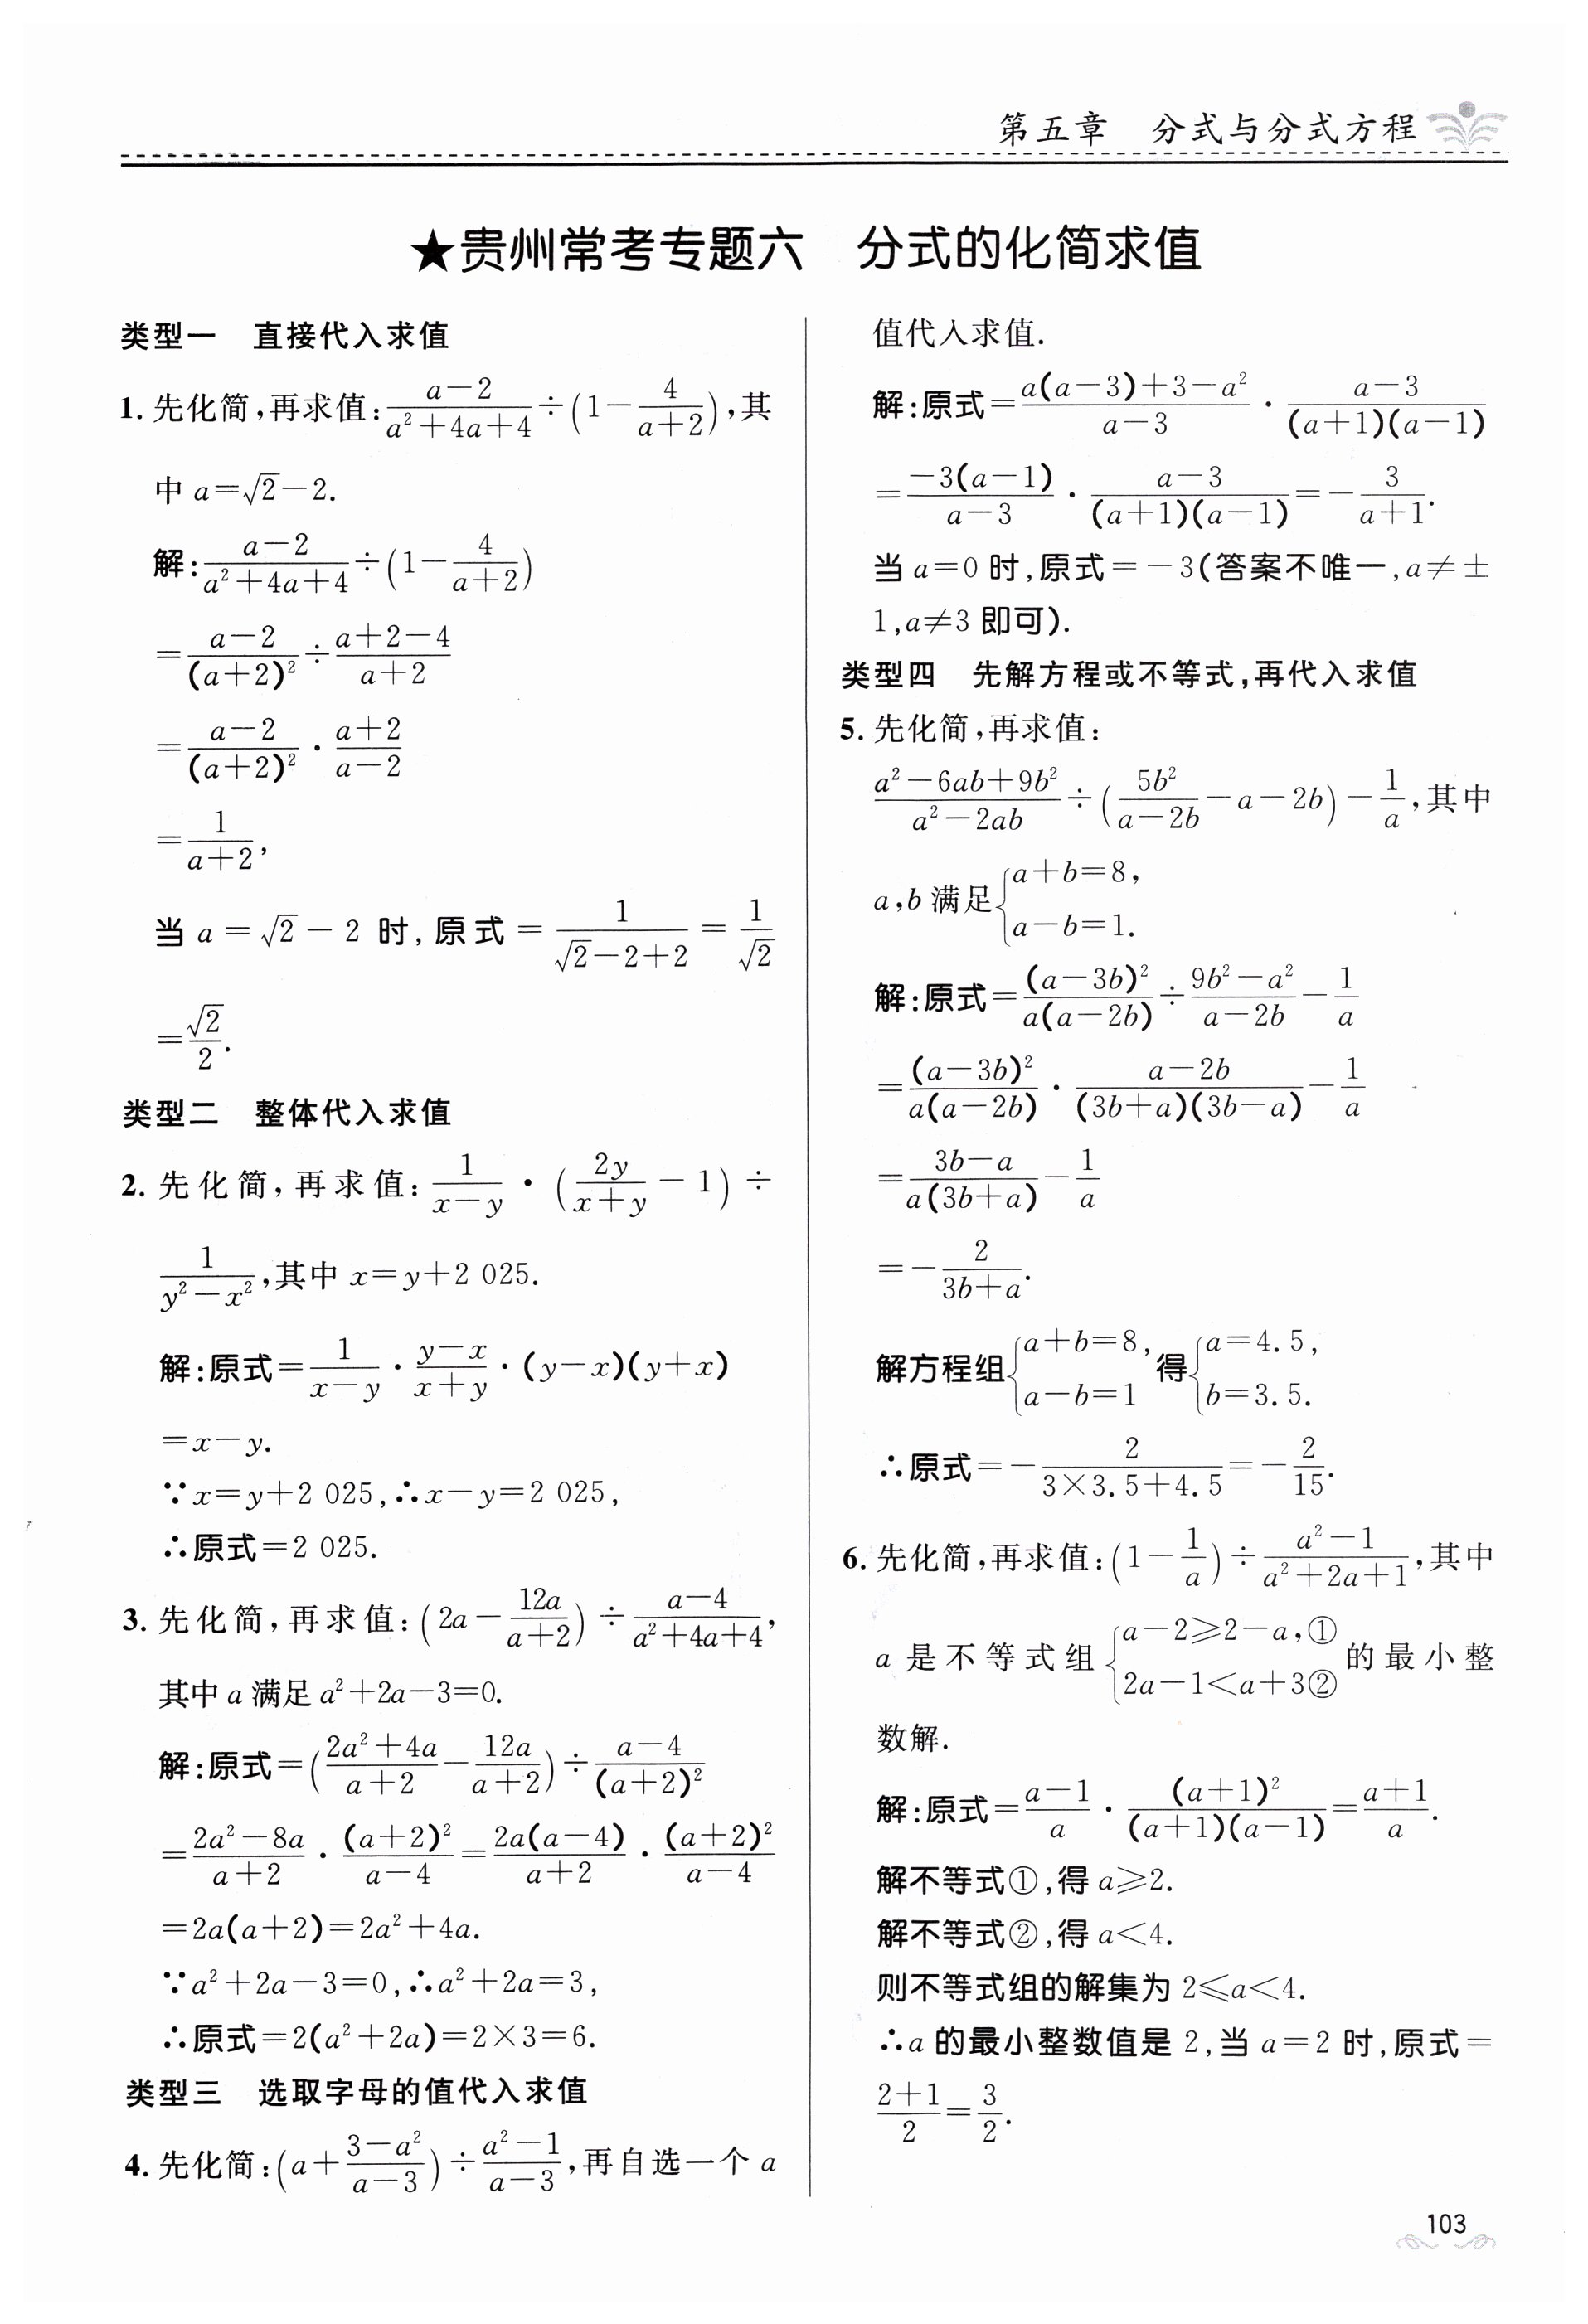 第五章 分式与分式方程
★贵州常考专题六 分式的化简求值
类型一 直接代入求值
1. 先化简,再求值:$\frac{a-2}{a^2+4a+4}÷(1-\frac{4}{a+2})$,其
中 $a=\sqrt{2}-2$.
解:$\frac{a-2}{a^2+4a+4}÷(1-\frac{4}{a+2})$
$=\frac{a-2}{(a+2)^2}÷\frac{a+2-4}{a+2}$
$=\frac{a-2}{(a+2)^2}·\frac{a+2}{a-2}$
$=\frac{1}{a+2}$,
当 $a=\sqrt{2}-2$ 时,原式$=\frac{1}{\sqrt{2}-2+2}=\frac{1}{\sqrt{2}}$
$=\frac{\sqrt{2}}{2}$.
类型二 整体代入求值
2. 先化简,再求值:$\frac{1}{x-y}·(\frac{2y}{x+y}-1)÷$
$\frac{1}{y^2-x^2}$,其中 $x=y+2 025$.
解:原式$=\frac{1}{x-y}·\frac{y-x}{x+y}·(y-x)(y+x)$
$=x-y$.
∵$x=y+2 025$,∴$x-y=2 025$,
∴原式$=2 025$.
3. 先化简,再求值:$(2a-\frac{12a}{a+2})÷\frac{a-4}{a^2+4a+4}$,
其中 $a$ 满足 $a^2+2a-3=0$.
解:原式$=(\frac{2a^2+4a}{a+2}-\frac{12a}{a+2})÷\frac{a-4}{(a+2)^2}$
$=\frac{2a^2-8a}{a+2}·\frac{(a+2)^2}{a-4}=\frac{2a(a-4)}{a+2}·\frac{(a+2)^2}{a-4}$
$=2a(a+2)=2a^2+4a$.
∵$a^2+2a-3=0$,∴$a^2+2a=3$,
∴原式$=2(a^2+2a)=2×3=6$.
类型三 选取字母的值代入求值
4. 先化简:$(a+\frac{3-a^2}{a-3})÷\frac{a^2-1}{a-3}$,再自选一个 $a$
值代入求值.
解:原式$=\frac{a(a-3)+3-a^2}{a-3}·\frac{a-3}{(a+1)(a-1)}$
$=\frac{-3(a-1)}{a-3}·\frac{a-3}{(a+1)(a-1)}=-\frac{3}{a+1}$.
当 $a=0$ 时,原式$=-3$(答案不唯一,$a≠±$
$1,a≠3$ 即可).
类型四 先解方程或不等式,再代入求值
5. 先化简,再求值:
$\frac{a^2-6ab+9b^2}{a^2-2ab}÷(\frac{5b^2}{a-2b}-a-2b)-\frac{1}{a}$,其中
$a,b$ 满足$\begin{cases}a+b=8,\\a-b=1.\end{cases}$
解:原式$=\frac{(a-3b)^2}{a(a-2b)}÷\frac{9b^2-a^2}{a-2b}-\frac{1}{a}$
$=\frac{(a-3b)^2}{a(a-2b)}·\frac{a-2b}{(3b+a)(3b-a)}-\frac{1}{a}$
$=\frac{3b-a}{a(3b+a)}-\frac{1}{a}$
$=-\frac{2}{3b+a}$.
解方程组$\begin{cases}a+b=8,\\a-b=1\end{cases}$得$\begin{cases}a=4.5,\\b=3.5.\end{cases}$
∴原式$=-\frac{2}{3×3.5+4.5}=-\frac{2}{15}$.
6. 先化简,再求值:$(1-\frac{1}{a})÷\frac{a^2-1}{a^2+2a+1}$,其中
$a$ 是不等式组$\begin{cases}a-2≥2-a,①\\2a-1<a+3②\end{cases}$的最小整
数解.
解:原式$=\frac{a-1}{a}·\frac{(a+1)^2}{(a+1)(a-1)}=\frac{a+1}{a}$.
解不等式①,得 $a≥2$.
解不等式②,得 $a<4$.
则不等式组的解集为 $2≤a<4$.
∴$a$ 的最小整数值是 2,当 $a=2$ 时,原式$=$
$\frac{2+1}{2}=\frac{3}{2}$.
103